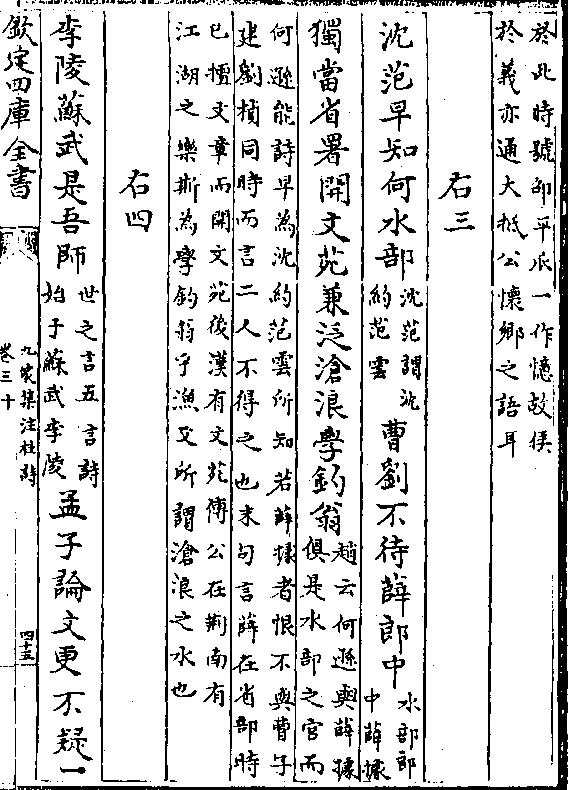 於此時號邵平瓜一作憶故侯
於義亦通大抵公懷鄉之語耳
右三
沈范早知何水部沈范謂沈
約范雲曹劉不待薛郎中水部郎
中薛據
獨當省署開文苑兼泛滄浪學釣翁趙云何遜與薛據
俱是水部之官而
何遜能詩早為沈約范雲所知若薛據者恨不與曹子
建劉楨同時而言二人不得之也末句言薛在省部時
已擅文章而開文苑後漢有文苑傳公在荆南有
江湖之樂斯為學釣翁乎漁父所謂滄浪之水也
右四
李陵蘇武是吾師世之言五言詩
始于蘇武李陵孟子論文更不疑一
欽定四庫全書
九家集注杜詩
卷三十
四十五